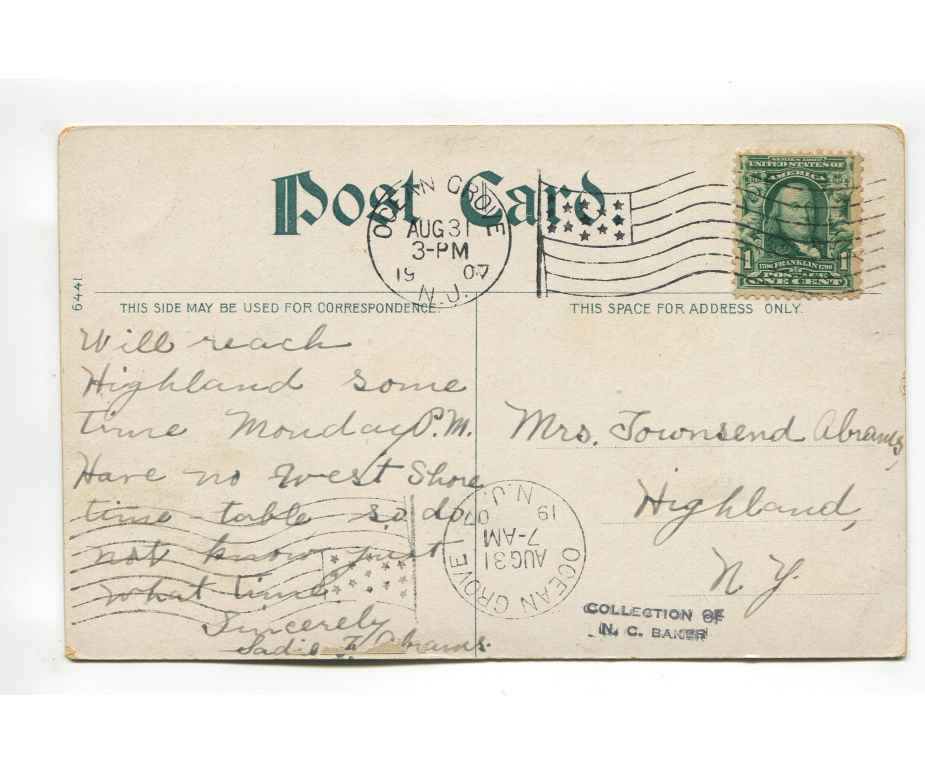 Post Card
OCEAN GROVE
AUG 31
3-PM
19 07
N.J.
SERIES 1902
UNITED STATES OF
AMERICA
1 1706 FRANKLIN 1790 1
POSTAGE
ONE CENT
6441
THIS SIDE MAY BE USED FOR CORRESPONDENCE.
THIS SPACE FOR ADDRESS ONLY.
Will reach
Highland some
time Monday P.M.
Have no West Shore
time table so do
not know just
what time.
Sincerely
Sadie Abrams.
Mrs. Townsend Abrams,
Highland,
N.Y.
OCEAN GROVE
AUG 31
7-AM
19 07
N.J.
COLLECTION OF
N. C. BAKER